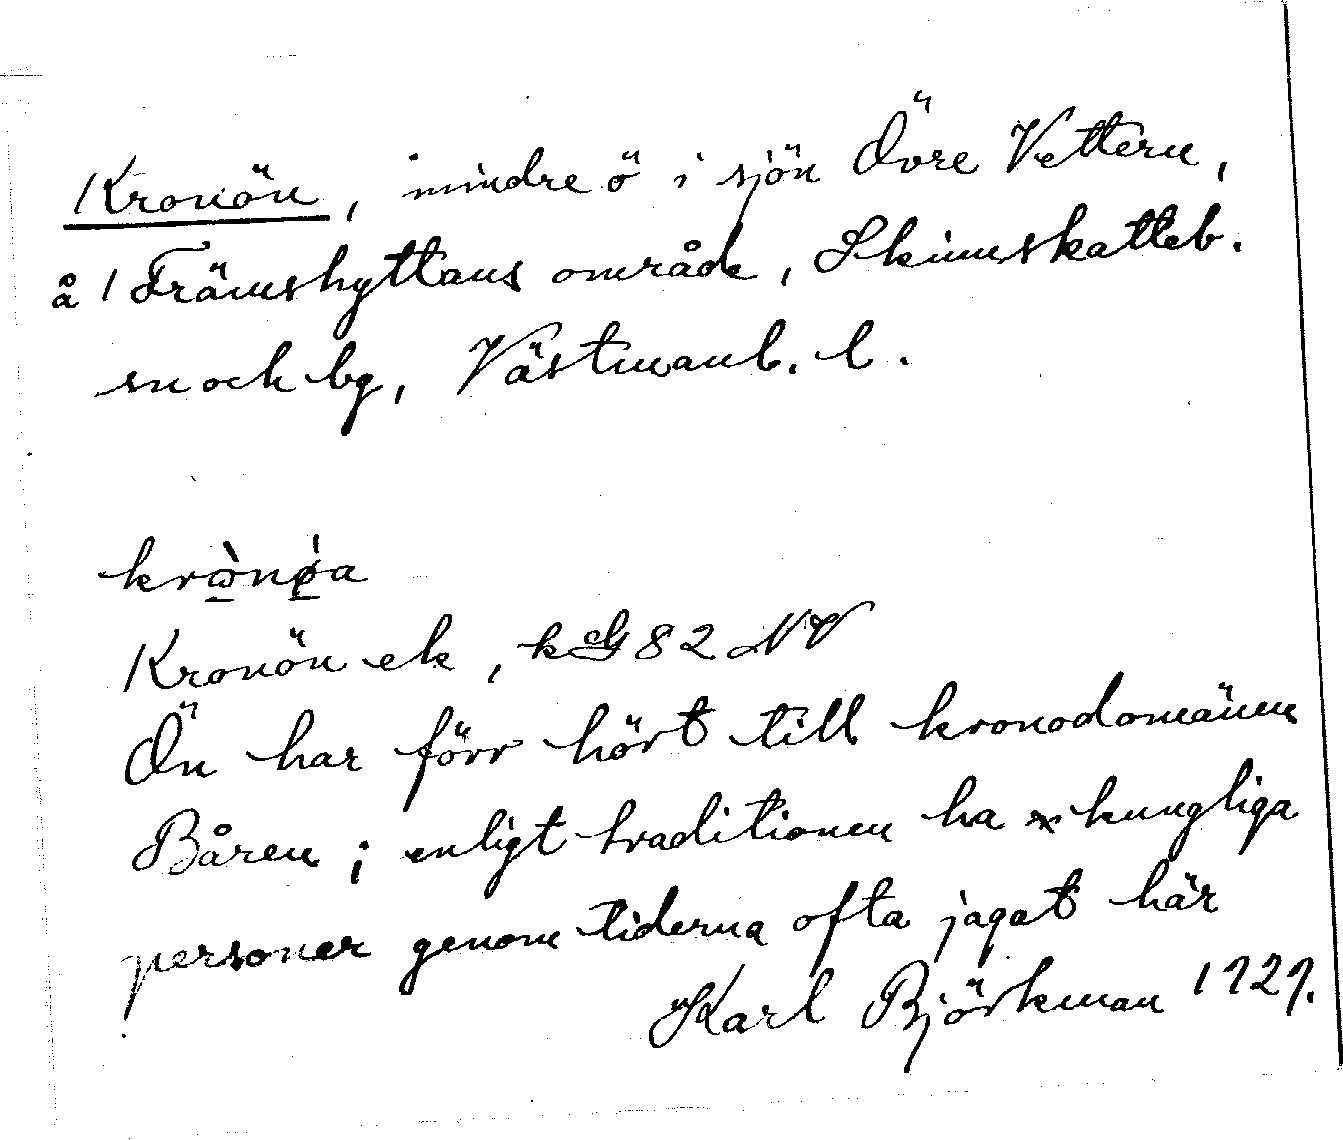 Kronön, mindre ö i sjön Övre Vettern,
å Främshyttans område, Skinnskatteb.
sn och bg, Västmanl. l.
krònøa
Kronön ek, kG 82 NV
Ön har förr hört till kronodomänen
Båren; enligt traditionen ha kungliga
personer genom tiderna ofta jagat här
Karl Björkman 1929.